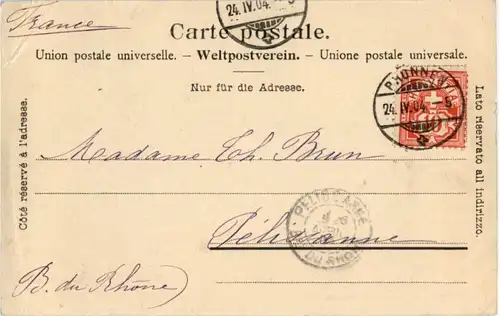 France
24. IV. 04.
Carte postale.
Union postale universelle. – Weltpostverein. – Unione postale universale.
Nur für die Adresse.
24. IV. 04. – 5
Côté réservé à l'adresse.
Lato riservato all indirizzo.
Madame Th. Brun
PELISSANNE
Pélissanne
DU RHONE
B. du Rhône)